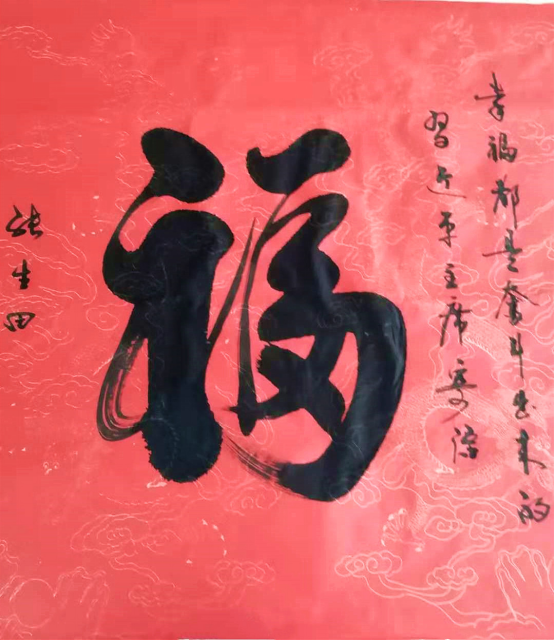 幸福都是奮斗出来的
習近平主席
福
张生田